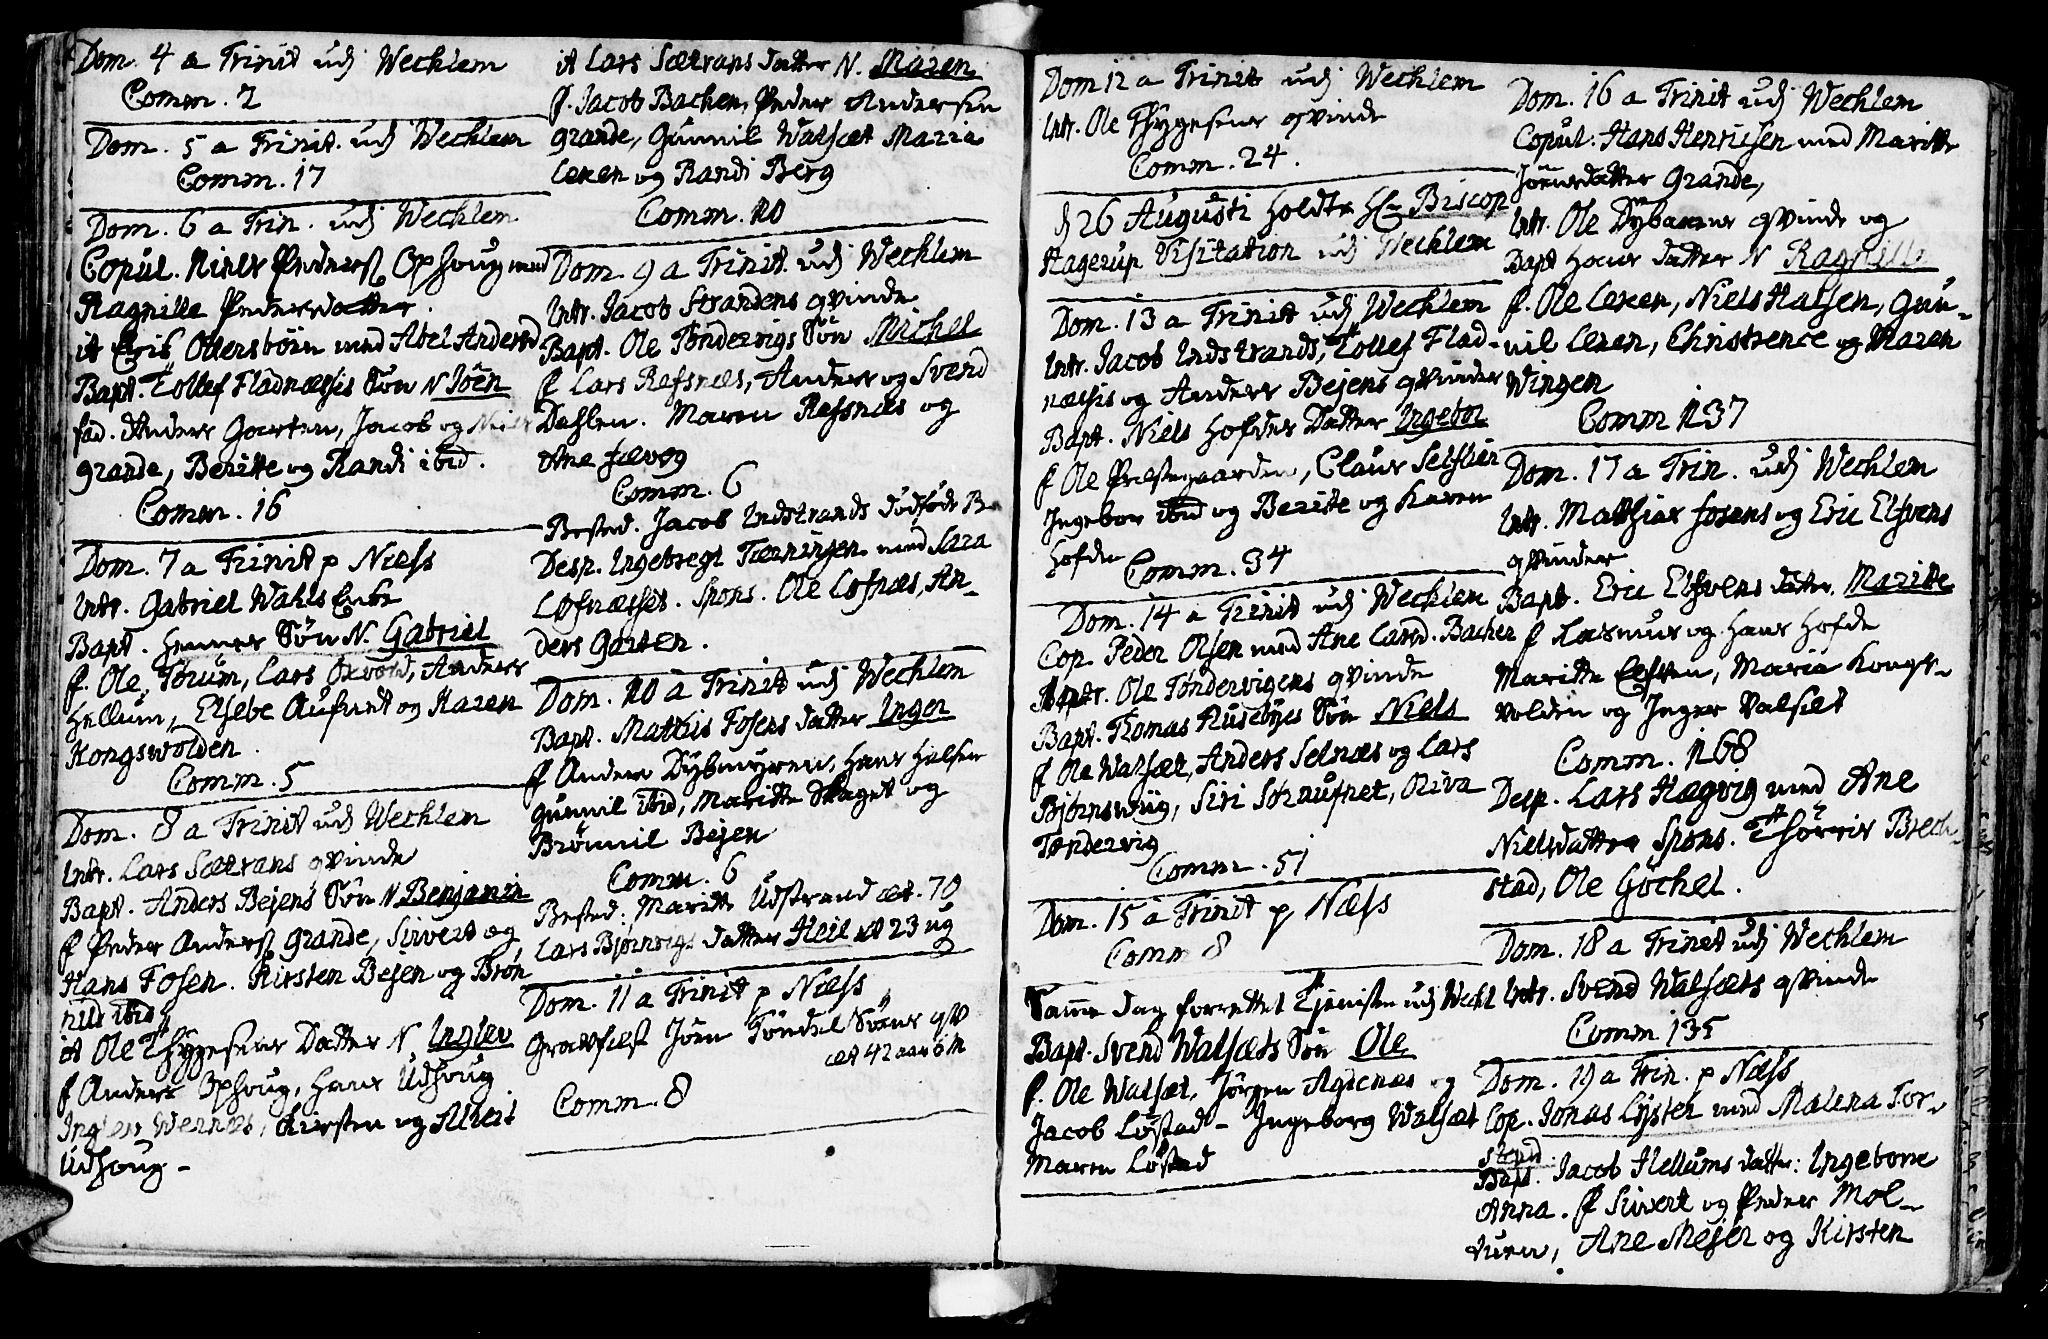 Dom. 4 a Trinit udj Wechlem
Comm. 2
Dom. 5 a Trinit. udj Wechlem
Comm. 17
Dom. 6 a Trin. udj Wechlem
Copul. Niels Peders Ophoug med
Ragnille Pedersdatter.
it Eric Ottersbön med Abel Andersd
Bapt. Tollef Fladnæssis Sön N Jöen
fad. Anders Garten, Jacob og Niels
grande, Beritte og Randi ibid.
Comm. 16
Dom. 7 a Trinit p Næss
Intr. Gabriel Wahls Enke
Bapt. hennes Sön N. Gabriel
f. Ole Torum, Lars Oxvold, Anders
Hellum, Elsebe Aufnet og Karen
Kongswolden.
Comm. 5
Dom. 8 a Trinit udj Wechlem
Intr. Lars Sætrans qvinde
Bapt. Anders Bejens Sön N Benjamin
f Peder Anders grande, Sivert og
Hans Fosen. Kirsten Bejen og Brön
nild ibid
it Ole Thygesens Datter N Inglev
f Anders Ophoug, Hans Udhoug
Inglev Wernes, Kirsten og Alheit
Udhoug -
it Lars Sætrans datter N. Maren
f. Jacob Backen, Peder Andersen
grande, Gunnil Walsæt Marre
Lexen og Randi Berg
Comm. 20
Dom. 9 a Trinit. udj Wechlem
Intr. Jacob Strandens qvinde
Bapt. Ole Töndervigs Sön Michel
f Lars Refsnes, Anders og Svend
Dahlen. Maren Refsnæs og
Ane Fævog
Comm. 6
Bested. Jacob Indstrands dödföde B
Desp. Ingebregt Tærningen med Sara
Løfnæsset. Spons. Ole Løfnæs, An-
ders Garten.
Dom. 10 a Trinit udj Wechlem
Bapt. Matthis Fosens datter Inger
f Anders Dybmyren, Hans Halsen
gunnil ibid, Maritte Skaget og
Brönnil Bejen
Comm. 6
Bested: Maritte Udstrand æt. 70
Lars Bjørnvigs datter Heil æt 23 ug
Dom. 11 a Trinit p Næss
Gravfæst Jöen Töndel Söens qv
æt 42 aar 6 M
Comm. 8
Dom 12 a Trinit udj Wechlem
Intr. Ole Thygesens qvinde
Comm. 24.
d 26 Augusti holdte Hr Biscop
Hagerup Visitation udj Wechlem
Dom. 13 a Trinit udj Wechlem
Intr. Jacob Indstrands, Tollef Flad-
næssis og Anders Bejens qvinder
Bapt. Niels Hofdes Datter Ingebor
f Ole Præstegaarden, Claus Selslien
Ingebor ibid og Beritte og Karen
Hofde
Comm. 34
Dom. 14 a Trinit udj Wechlem
Cop. Peder Olsen med Ane Larsd. Backer
Intr. Ole Töndervigens qvinde
Bapt. Tomas Husebyes Sön Niels
f Ole Walsæt, Anders Selnæs og Lars
Bjørnswiig, Siri Sörnufnet, Oliva
Tøndervig
Comm. 51
Dom. 15 a Trinit p Næss
Comm 8
Samme dag forrettet Tjenisten udj Wechl
Bapt. Svend Walsæts Sön Ole
f. Ole Walsæt, Jörgen Agdenæs og
Jacob Löstad - Ingeborg Walsæt
Maren Löstad
Dom. 16 a Trinit udj Wechlem
Copul: Hans Henrissen med Maritte
Jönsdatter Grande,
Intr. Ole Dybaunes qvinde og
Bapt hans datter N Ragnille
f. Ole Lexen, Niels Halsen, Gun-
nil Lexen, Christence og Maren
Wingen
Comm 137
Dom. 17 a Trin. udj Wechlem
Intr. Matthias Fosens og Eric Elfvens
qvinder
Bapt. Eric Elfvens datter. Maritte
f Rasmus og Hans Hofde
Maritte Elfven, Maria Kongs-
volden og Inger Valset
Comm. 168
Desp. Lars Hægvig med Ane
Nielsdatter Spons. Thörris Breck-
stad, Ole Göckel.
Dom. 18 a Trinit udj Wechlem
Intr. Svend Walsæts qvinde
Comm 135
Dom. 19 a Trin. p Næss
Cop. Jonas Lyster med Malena Tor-
strand
Bapt. Jacob Hellums datter: Ingeborre
Anna. f Sivert og Peder Mol-
turen, Ane Mejer og Kirsten